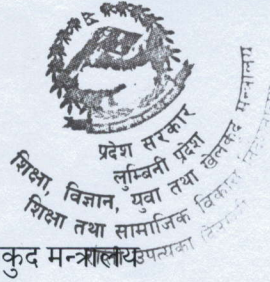 प्रदेश सरकार
लुम्बिनी प्रदेश
शिक्षा, विज्ञान, युवा तथा खेलकुद मन्त्रालय
शिक्षा तथा सामाजिक विकास
उपत्यका
कुद मन्त्रालय